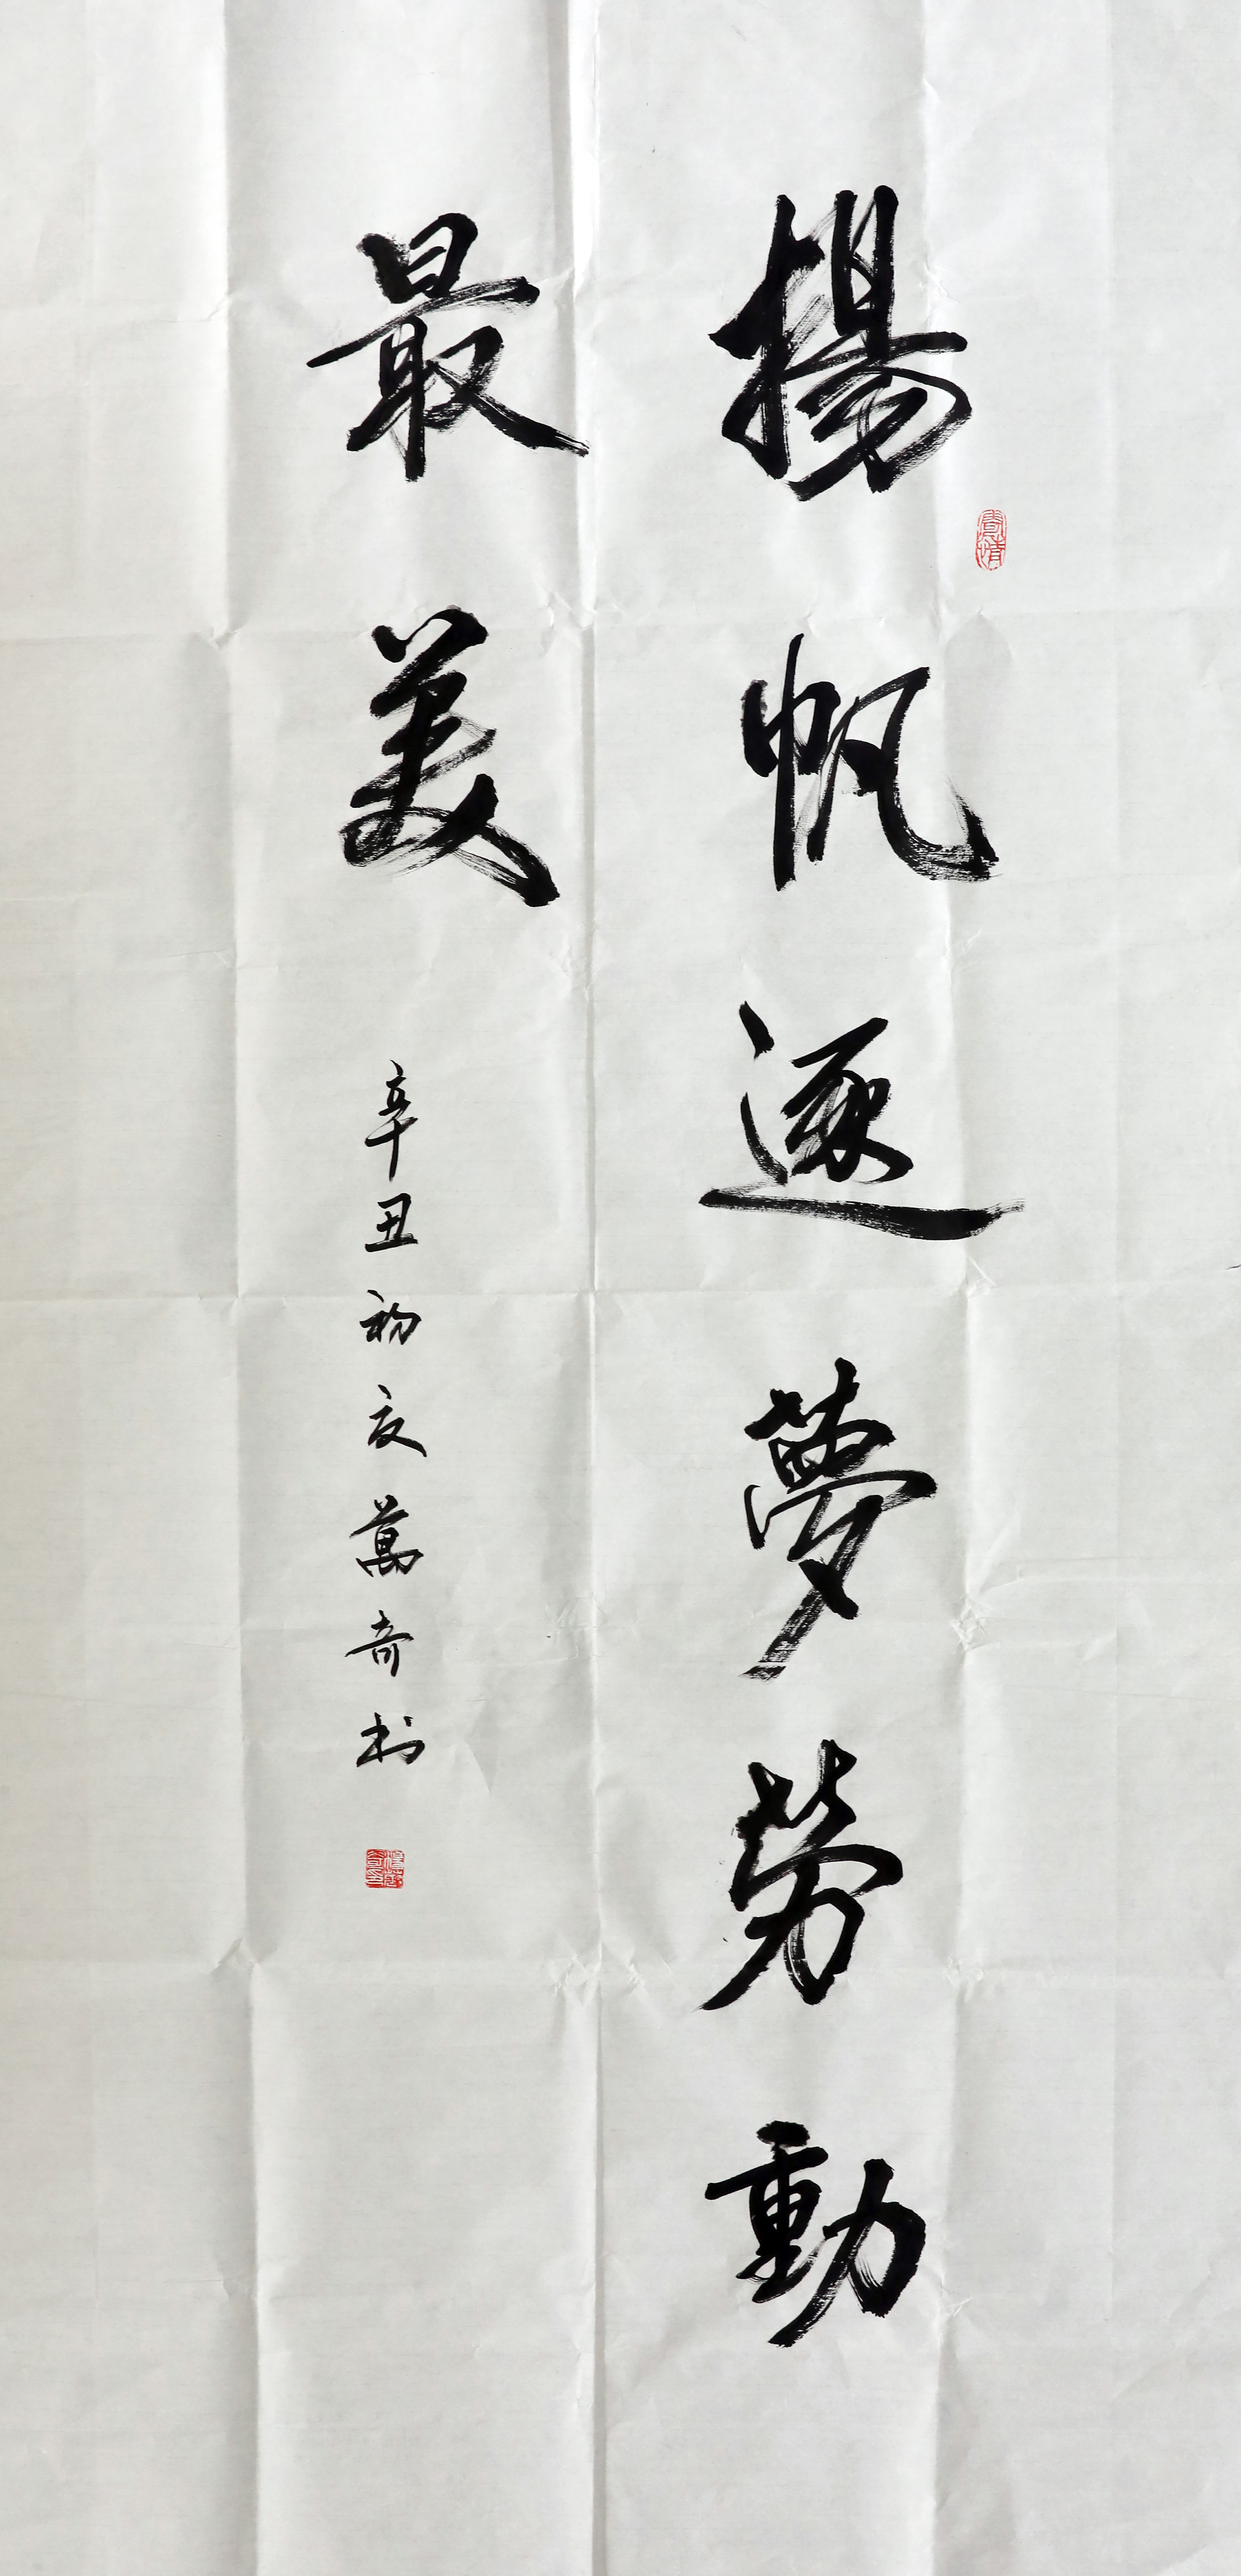 揚帆逐夢勞動
最美
辛丑初夏萬奇书